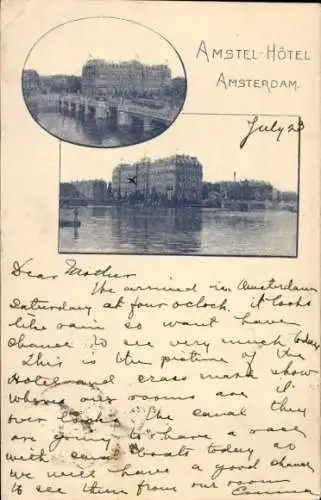 AMSTEL-HÔTEL
AMSTERDAM.
July 23
Dear Mother
We arrived in Amsterdam
Saturday at four oclock. it looks
like rain so wont have
chance to see very much today
This is the picture of the
Hotel and cross mark show
where our rooms are it
over looks the canal they
are going to have a race
with canal boats today so
we will have a good chance
to see them from our room